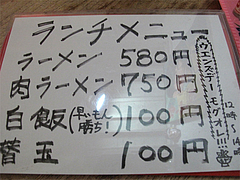 ランチメニュー
ラーメン 580円
肉ラーメン 750円
白飯(早いもん勝ち!) 100円
替玉 100円
ウエンズデーモグオレ!!!
12時〜14時